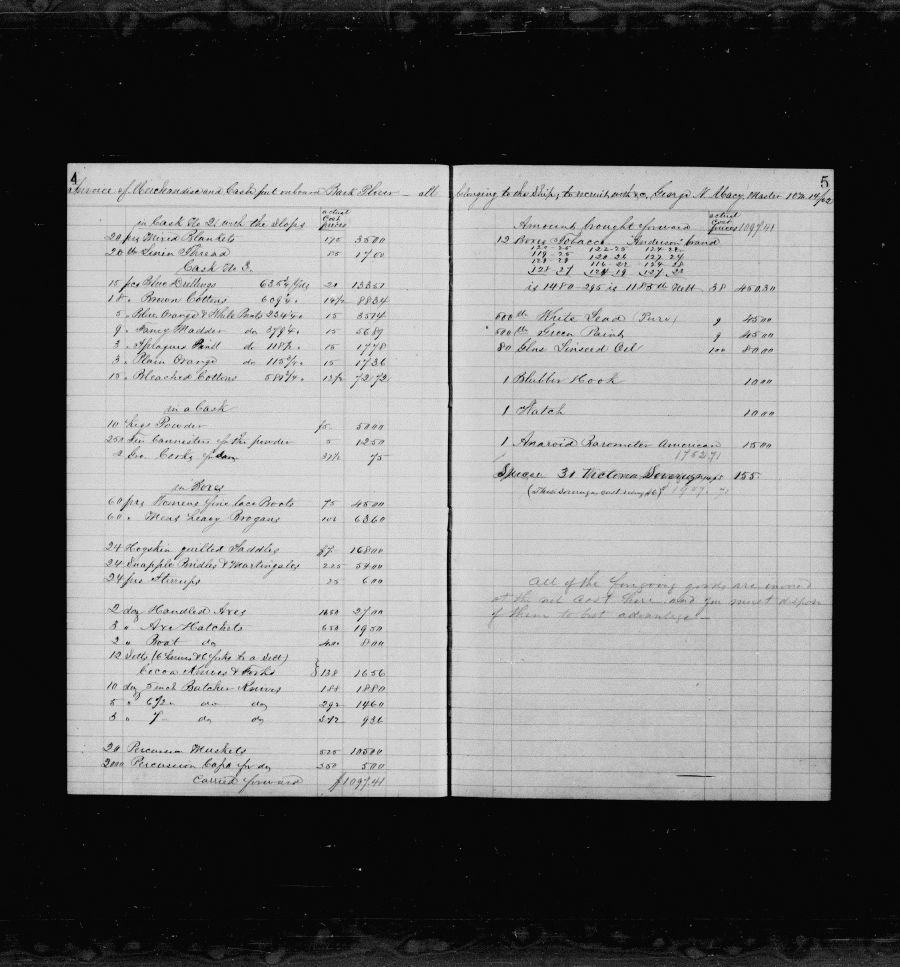 4
Invoice of Merchandise and Cash put on board Bark Plover — all
actual Cost prices
in Cask No 2. with the Slops
20 prs Mixed Blankets 175 35 00
20 lb Linen Thread 85 17 00
Cask No 3.
15 pcs Blue Drillings 635 yds 21 133 51
18 " Brown Cottons 609 " 14 1/2 88 34
5 " Blue Orange & White Prints 234 " 15 35 14
9 " Fancy Madder do 379 " 15 56 89
3 " Spragues Print do 118 " 15 17 78
3 " Plain Orange do 115 " 15 17 36
15 " Bleached Cottons 581 " 12 1/2 72 72
in a Cask
10 kegs Powder $5 50 00
250 Tin Cannisters for the powder 5 12 50
2 Gro. Corks for do 37 1/2 75
in Boxes
60 prs Womens fine lace Boots 75 45 00
60 " Mens heavy Brogans 106 63 60
24 Hogskin quilted Saddles $7 168 00
24 Snapple Bridles & Martingales 225 54 00
24 prs Stirrups 25 6 00
2 doz Handled Axes 1350 27 00
3 " Axe Hatchets 650 19 50
2 " Boat do 400 8 00
12 Setts (6 Knives & 6 forks to a Sett)
Cocoa Knives & Forks 138 16 56
10 doz 5 inch Butcher Knives 188 18 80
5 " 6 1/2 " do do 292 14 60
3 " 7 " do do 312 9 36
20 Percussion Muskets 525 105 00
2000 Percussion Caps for do 250 5 00
Carried forward $1097.41
5
belonging to the Ship, to recruit with &c, George N. Macy Master 10 m 14/82
actual cost prices
Amount brought forward 1097.41
12 Boxes Tobacco Anderson brand
120-25 122-25 124-28
119-25 120-26 127-24
128-28 116-22 124-23
121-27 124-19 127-23
is 1480-295 is 1185 lb Nett 38 450.30
500 lb White Lead (Pure) 9 45 00
500 lb Green Paint 9 45 00
80 Glns Linseed Oil 100 80 00
1 Blubber Hook 10 00
1 Hatch 10 00
1 Anaroid Barometer American 15 00
1752.71
Specie 31 Victoria Sovereigns 155
1907.71
All of the foregoing goods are invoiced
at the net cost here and you must dispose
of them to best advantage —